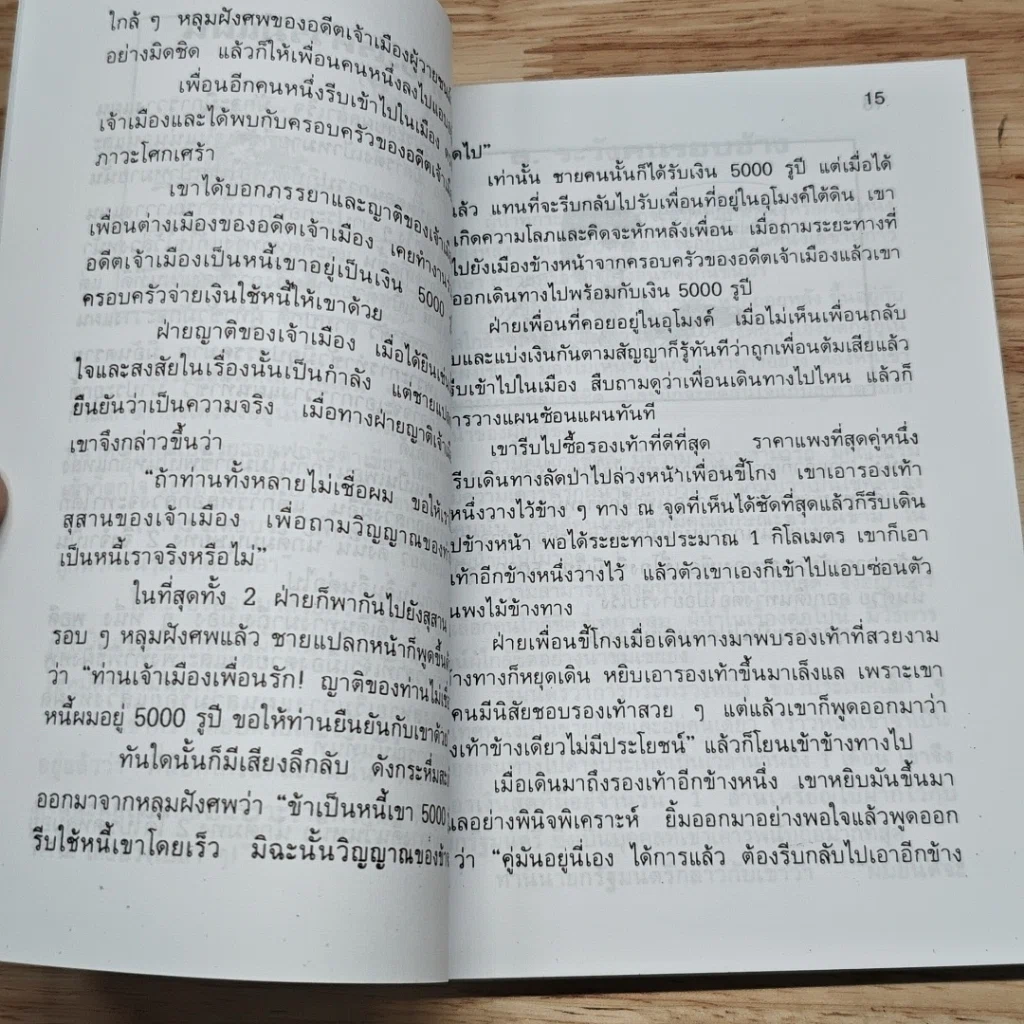 ใกล้ ๆ หลุมฝังศพของอดีตเจ้าเมืองผู้วายชนม์
อย่างมิดชิด แล้วก็ให้เพื่อนคนหนึ่งลงไปแอบ
เพื่อนอีกคนหนึ่งรีบเข้าไปในเมือง
เจ้าเมืองและได้พบกับครอบครัวของอดีตเจ้า
ภาวะโศกเศร้า
เขาได้บอกภรรยาและญาติของเจ้า
เพื่อนต่างเมืองของอดีตเจ้าเมือง เคยทำงาน
อดีตเจ้าเมืองเป็นหนี้เขาอยู่เป็นเงิน 5000
ครอบครัวจ่ายเงินใช้หนี้ให้เขาด้วย
ฝ่ายญาติของเจ้าเมือง เมื่อได้ยินเช่น
ใจและสงสัยในเรื่องนั้นเป็นกำลัง แต่ชายแปลก
ยืนยันว่าเป็นความจริง เมื่อทางฝ่ายญาติเจ้า
เขาจึงกล่าวขึ้นว่า
“ถ้าท่านทั้งหลายไม่เชื่อผม ขอให้
สุสานของเจ้าเมือง เพื่อถามวิญญาณของ
เป็นหนี้เราจริงหรือไม่”
ในที่สุดทั้ง 2 ฝ่ายก็พากันไปยังสุสาน
รอบ ๆ หลุมฝังศพแล้ว ชายแปลกหน้าก็พูดขึ้น
ว่า “ท่านเจ้าเมืองเพื่อนรัก! ญาติของท่านไม่
หนี้ผมอยู่ 5000 รูปี ขอให้ท่านยืนยันกับเขาด้วย
ทันใดนั้นก็มีเสียงลึกลับ ดังกระหึ่ม
ออกมาจากหลุมฝังศพว่า “ข้าเป็นหนี้เขา 5000
รีบใช้หนี้เขาโดยเร็ว มิฉะนั้นวิญญาณของข้า
15
ดไป”
เท่านั้น ชายคนนั้นก็ได้รับเงิน 5000 รูปี แต่เมื่อได้
แล้ว แทนที่จะรีบกลับไปรับเพื่อนที่อยู่ในอุโมงค์ใต้ดิน เขา
เกิดความโลภและคิดจะหักหลังเพื่อน เมื่อถามระยะทางที่
ไปยังเมืองข้างหน้าจากครอบครัวของอดีตเจ้าเมืองแล้วเขา
ออกเดินทางไปพร้อมกับเงิน 5000 รูปี
ฝ่ายเพื่อนที่คอยอยู่ในอุโมงค์ เมื่อไม่เห็นเพื่อนกลับ
บและแบ่งเงินกันตามสัญญาก็รู้ทันทีว่าถูกเพื่อนต้มเสียแล้ว
รีบเข้าไปในเมือง สืบถามดูว่าเพื่อนเดินทางไปไหน แล้วก็
ารวางแผนซ้อนแผนทันที
เขารีบไปซื้อรองเท้าที่ดีที่สุด ราคาแพงที่สุดคู่หนึ่ง
รีบเดินทางลัดป่าไปล่วงหน้าเพื่อนขี้โกง เขาเอารองเท้า
หนึ่งวางไว้ข้าง ๆ ทาง ณ จุดที่เห็นได้ชัดที่สุดแล้วก็รีบเดิน
ปข้างหน้า พอได้ระยะทางประมาณ 1 กิโลเมตร เขาก็เอา
เท้าอีกข้างหนึ่งวางไว้ แล้วตัวเขาเองก็เข้าไปแอบซ่อนตัว
นพงไม้ข้างทาง
ฝ่ายเพื่อนขี้โกงเมื่อเดินทางมาพบรองเท้าที่สวยงาม
างทางก็หยุดเดิน หยิบเอารองเท้าขึ้นมาเล็งแล เพราะเขา
คนมีนิสัยชอบรองเท้าสวย ๆ แต่แล้วเขาก็พูดออกมาว่า
งเท้าข้างเดียวไม่มีประโยชน์” แล้วก็โยนเข้าข้างทางไป
เมื่อเดินมาถึงรองเท้าอีกข้างหนึ่ง เขาหยิบมันขึ้นมา
แลอย่างพินิจพิเคราะห์ ยิ้มออกมาอย่างพอใจแล้วพูดออก
ว่า “คู่มันอยู่นี่เอง ได้การแล้ว ต้องรีบกลับไปเอาอีกข้าง